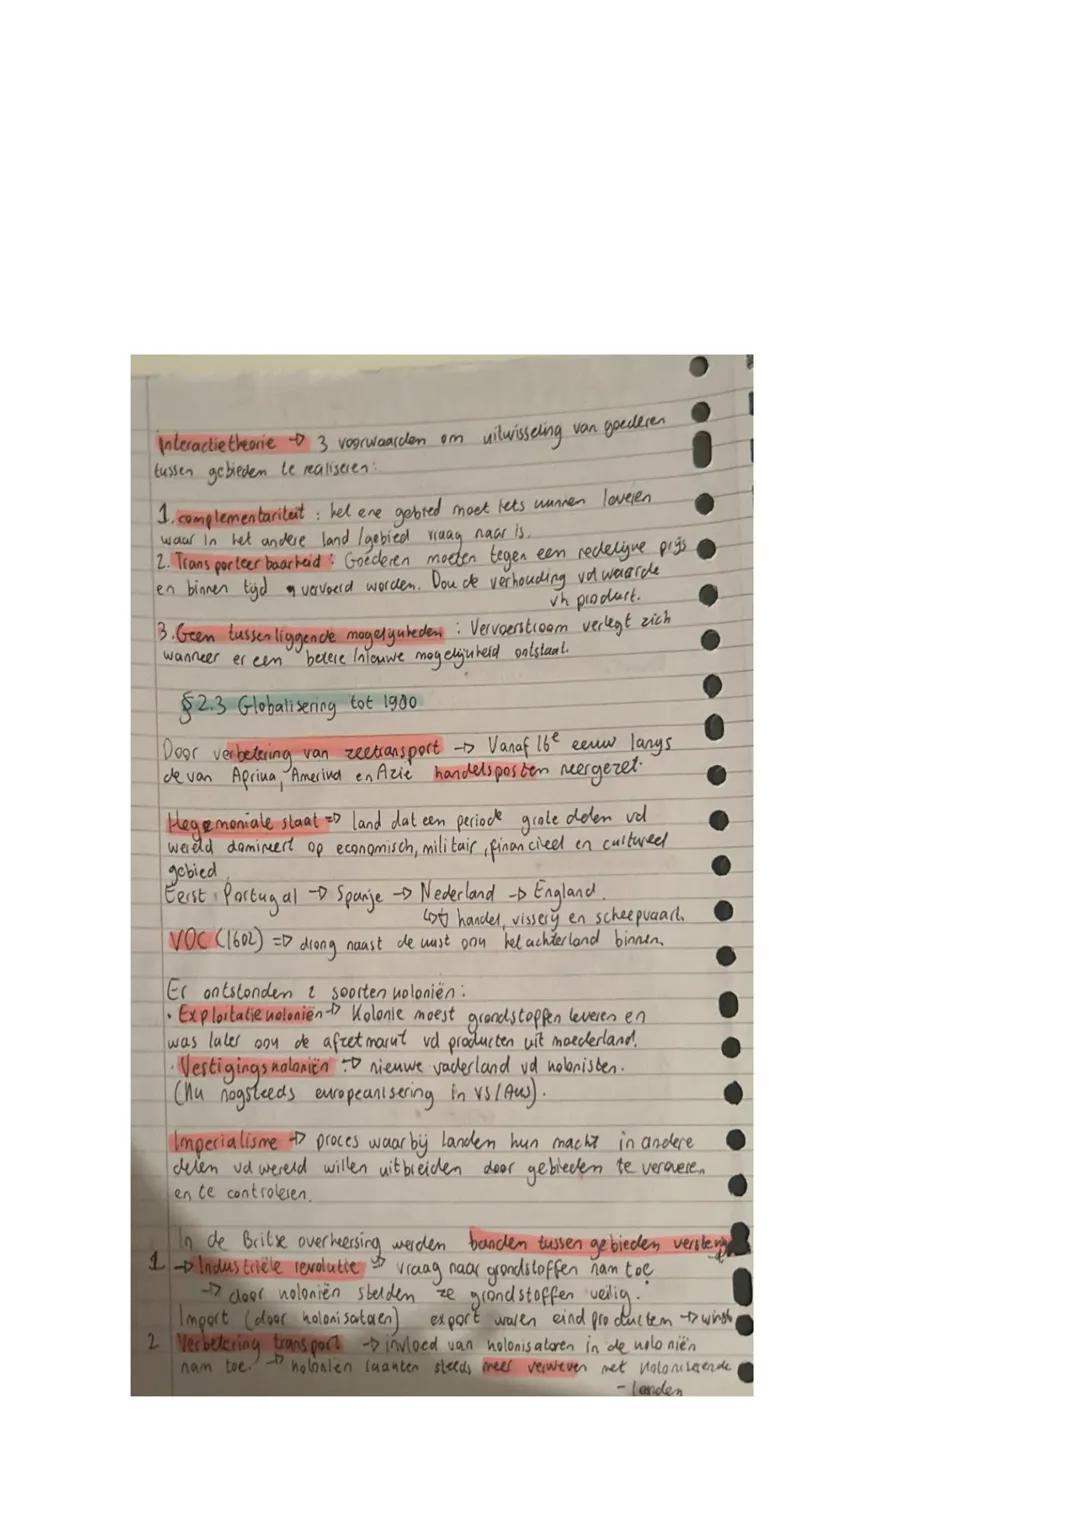 Interactietheorie → 3 voorwaarden om uitwisseling van goederen
tussen gebieden te realiseren:
1. complementariteit : het ene gebied moet iets kunnen leveren
waar in het andere land / gebied vraag naar is.
2. Transporteerbaarheid : Goederen moeten tegen een redelijke prijs
en binnen tijd vervoerd worden. Dou de verhouding vd waarde
vh product.
3. Geen tussenliggende mogelijkheden : Vervoerstroom verlegt zich
wanneer er een betere / nieuwe mogelijkheid ontstaat.
§ 2.3 Globalisering tot 1900
Door verbetering van zeetransport → Vanaf 16e eeuw langs
de van Afrika, Amerika en Azië handelsposten neergezet.
Hegemoniale staat => land dat een periode grote delen vd
wereld domineert op economisch, militair, financieel en cultureel
gebied.
Eerst Portugal → Spanje → Nederland → England.
↳ handel, visserij en scheepvaart.
VOC (1602) => drong naast de kust ook het achterland binnen.
Er ontstonden 2 soorten koloniën :
• Exploitatiekoloniën → Kolonie moest grondstoffen leveren en
was later ook de afzetmarkt vd producten uit moederland.
• Vestigingskoloniën : → nieuwe vaderland vd kolonisten.
(Nu nogsteeds europeanisering in VS / Aus).
Imperialisme → proces waarbij landen hun macht in andere
delen vd wereld willen uitbreiden door gebieden te veroveren
en te controleren.
In de Britse overheersing werden banden tussen gebieden versterkt
1 → Industriële revolutie → vraag naar grondstoffen nam toe
→ door koloniën stelden ze grondstoffen veilig.
Import (door kolonisatoren) export waren eindproducten → winst
2 Verbetering transport → invloed van kolonisatoren in de koloniën
nam toe. → koloniën raakten steeds meer verweven met koloniserende
- landen